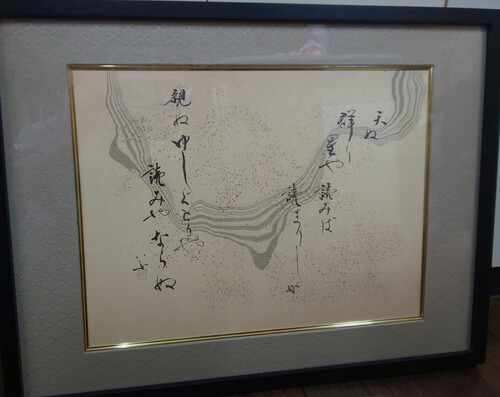 天ぬ
群り星や 読みば
読まりしが
親ぬ ゆしぐとぅや
読みやならぬ